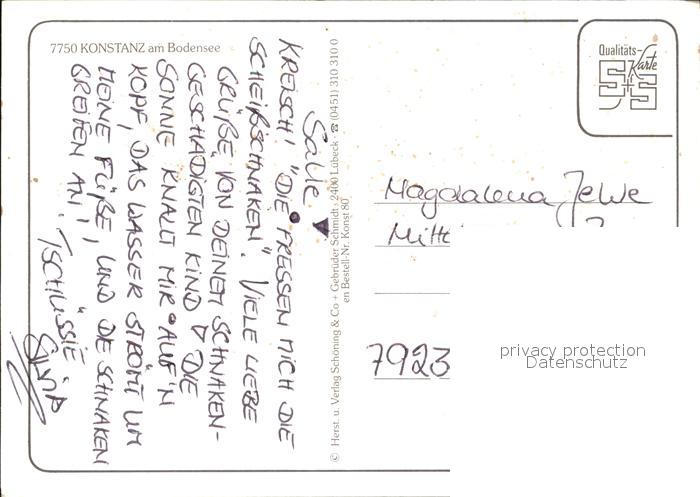 7750 KONSTANZ am Bodensee
Qualitäts-
Karte
S+S
Salle
KREISCH! "DIE FRESSEN MICH DIE
SCHEIßSCHNAKEN". VIELE LIEBE
GRÜßE VON DEINEM SCHNAKEN-
GESCHÄDIGTEN KIND DIE
SONNE KNALLT MIR AUF'N
KOPF, DAS WASSER STRÖMT UM
MEINE FÜßE, UND DIE SCHNAKEN
GREIFEN AN! TSCHÜSSIE
© Herst. u. Verlag Schöning & Co + Gebrüder Schmidt, 2400 Lübeck ☎ (0451) 310 310 0
en Bestell-Nr. Konst 80
Magdalena
Mitt
7923
privacy protection
Datenschutz